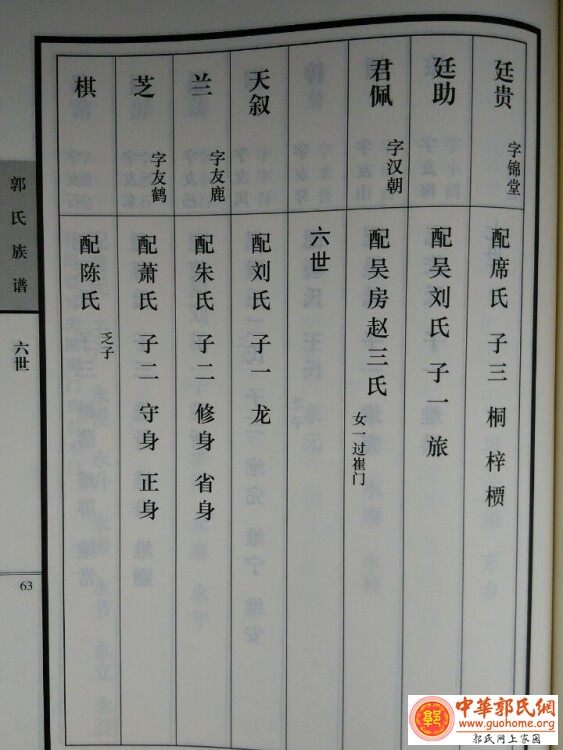 廷贵 字锦堂 配席氏 子三 桐 梓 槚
廷助 配吴刘氏 子一 旅
君佩 字汉朝 配吴房赵三氏 女一过崔门
六世
天叙 配刘氏 子一 龙
兰 字友鹿 配朱氏 子二 修身 省身
芝 字友鹤 配萧氏 子二 守身 正身
棋 配陈氏 乏子
郭氏族谱
六世
63
中華郭氏網
www.guohome.org
郭氏网上家园